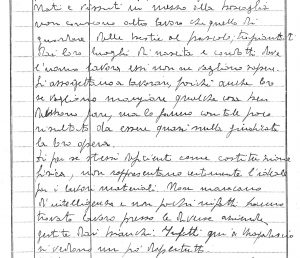 Nati e vissuti in mezzo alla boscaglia
non conoscono altro lavoro che quello di
guardare delle bestie al pascolo; trapiantati
dai loro luoghi di nascita e condotti dove
l'uomo lavora essi non ne vogliono sapere.
S'assoggettano a lavorare, poichè anche loro
se vogliono mangiare qualche cosa ben
debbono fare, ma lo fanno con tale poco
risultato da essere quasi nulla giudicata
la loro opera.
Di per se stessi deficienti come costituzione
fisica, non rappresentano certamente l'ideale
per i lavori materiali. Non mancano
d'intelligenza e non pochi infatti hanno
trovato lavoro presso le diverse aziende
gestite dai bianchi. Infatti qui a Mogadiscio
si vedono un po' dappertutto